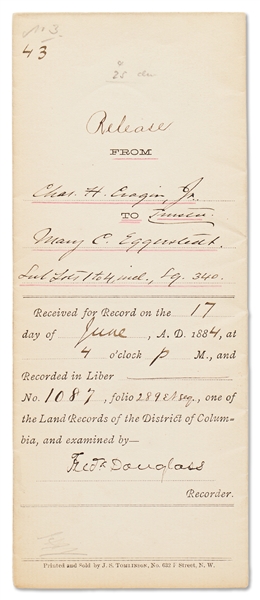 No 3.
43
25 dm
Release
FROM
Chas. H. Cragin, Jr.
TO Trustee
Mary C. Eggerstedt.
Sub Lots 1 to 4, incl., Sq. 340.
Received for Record on the 17
day of June, A. D. 1884, at
4 o'clock P M., and
Recorded in Liber
No. 1087, folio 289 et seq., one of
the Land Records of the District of Colum-
bia, and examined by—
Fredk Douglass
Recorder.
Printed and Sold by J. S. TOMLINSON, No. 632 F Street, N. W.